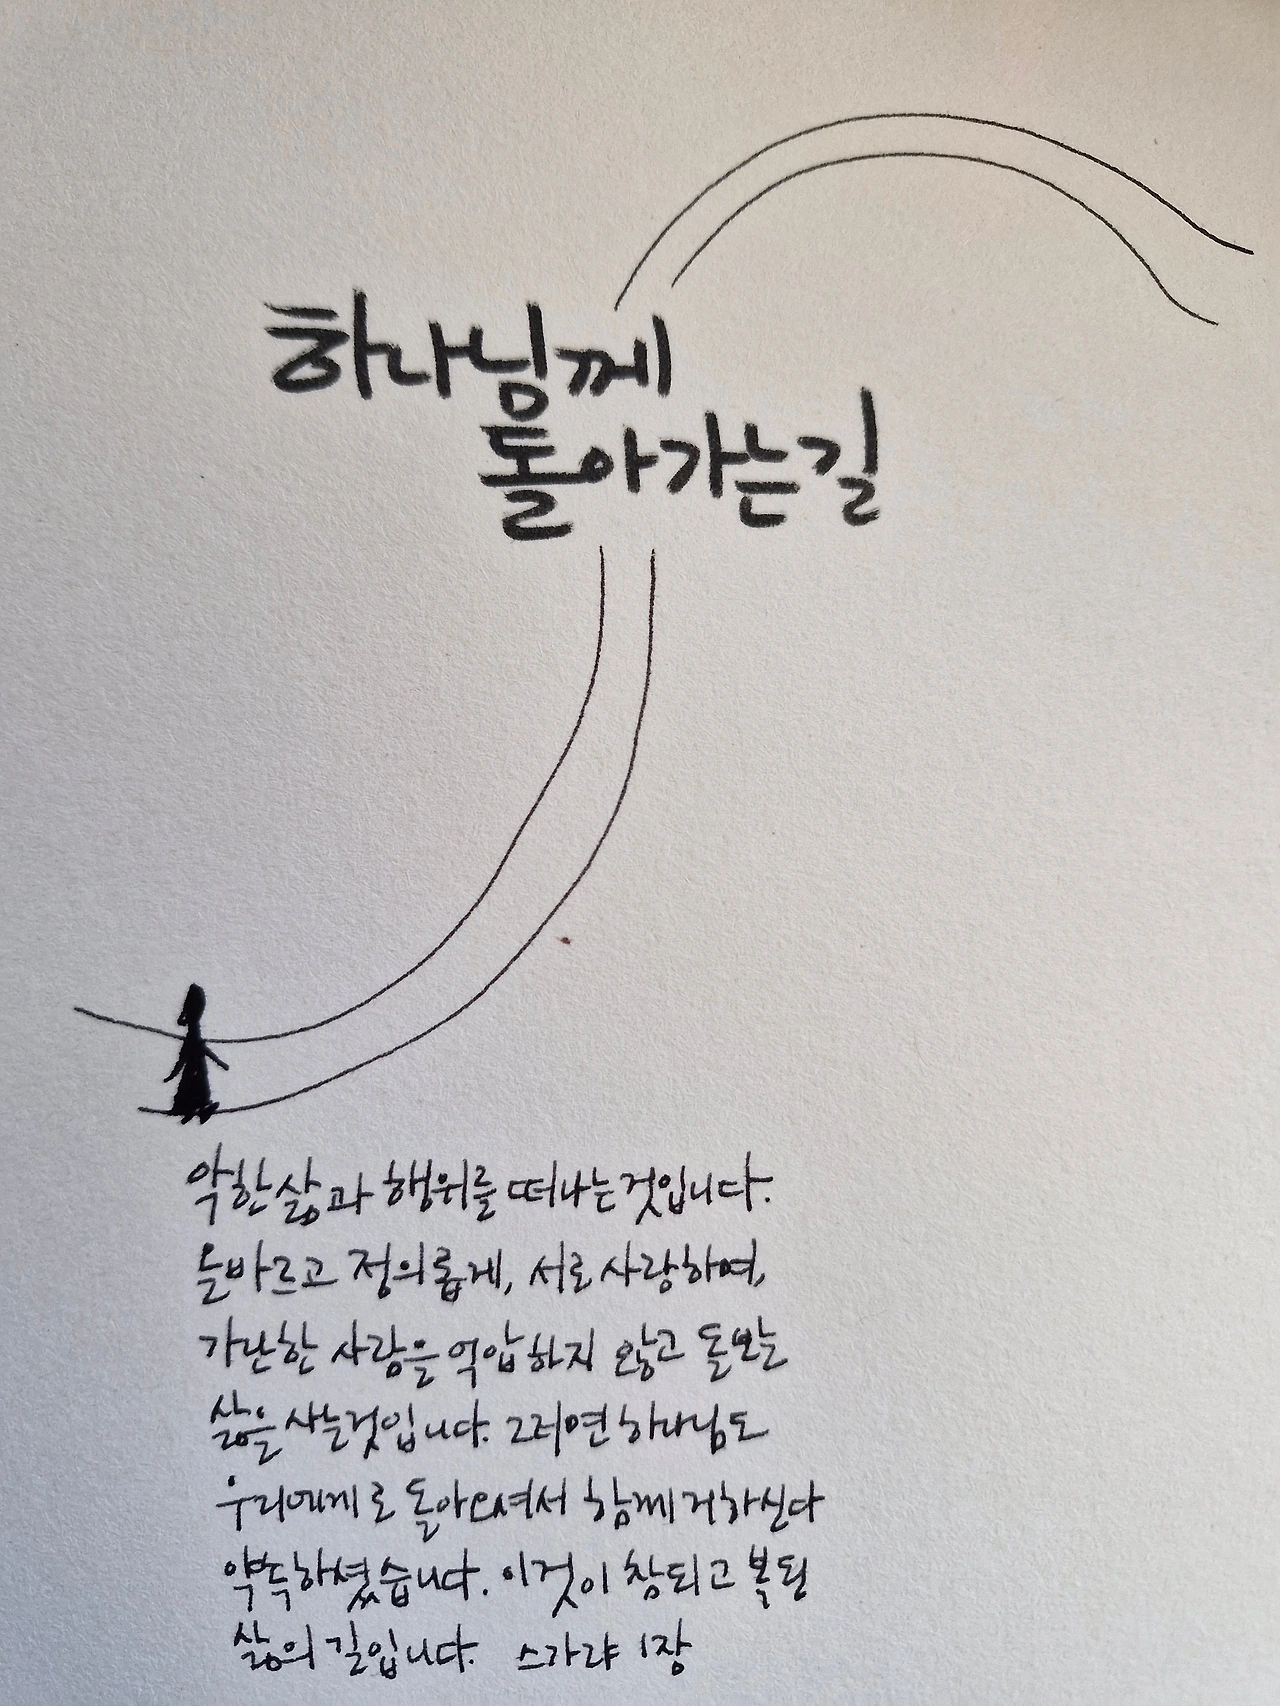 하나님께
돌아가는길
악한 삶과 행위를 떠나는것입니다.
올바르고 정의롭게, 서로 사랑하며,
가난한 사람을 억압하지 않고 돌보는
삶을 사는것입니다. 그러면 하나님도
우리에게로 돌아오셔서 함께 거하신다
약속하셨습니다. 이것이 참되고 복된
삶의 길입니다. 스가랴 1장